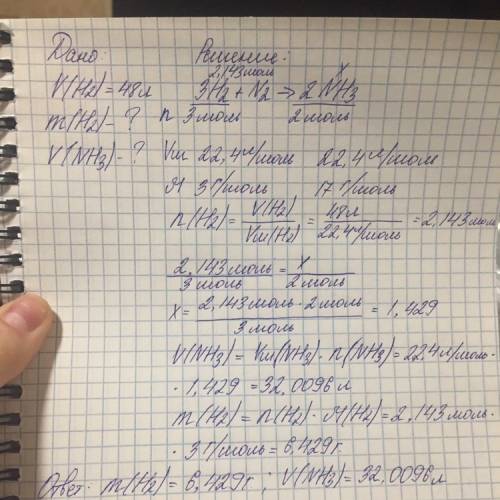 Дано: Решение:
2,143моль х
V(H2)=48л 3H2+N2=>2NH3
m(H2)-? n 3моль 2моль
V(NH3)-? Vm 22,4л/моль 22,4л/моль
M 3г/моль 17г/моль
n(H2)=V(H2)/Vm(H2)=48л/22,4л/моль=2,143моль
2,143моль/3моль=х/2моль
х=2,143моль·2моль/3моль=1,429
V(NH3)=Vm(NH3)·n(NH3)=22,4л/моль·
·1,429=32,0096л
m(H2)=n(H2)·M(H2)=2,143моль·
·3г/моль=6,429г
Ответ: m(H2)=6,429г; V(NH3)=32,0096л